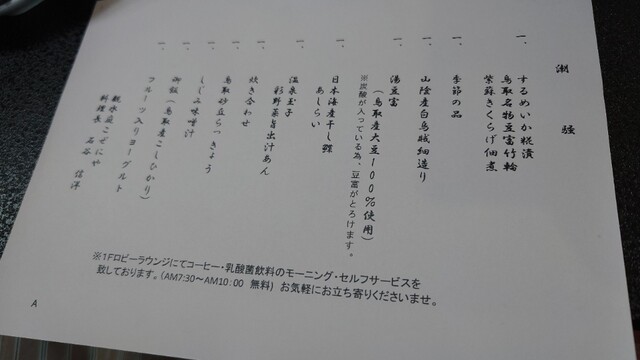 潮騒
一、するめいか糀漬
鳥取名物豆富竹輪
紫蘇きくらげ佃煮
一、季節の品
一、山陰産白烏賊細造り
一、湯豆富
(鳥取産大豆100%使用)
※炭酸が入っている為、豆富がとろけます。
一、日本海産干し鰈
あしらい
一、温泉玉子
彩野菜旨出汁あん
一、炊き合わせ
一、鳥取砂丘らっきょう
一、しじみ味噌汁
一、御飯(鳥取産こしひかり)
一、フルーツ入りヨーグルト
観水庭こぜにや
料理長 石谷 信洋
※1Fロビーラウンジにてコーヒー・乳酸菌飲料のモーニング・セルフサービスを
致しております。(AM7:30~AM10:00 無料) お気軽にお立ち寄りくださいませ。
A